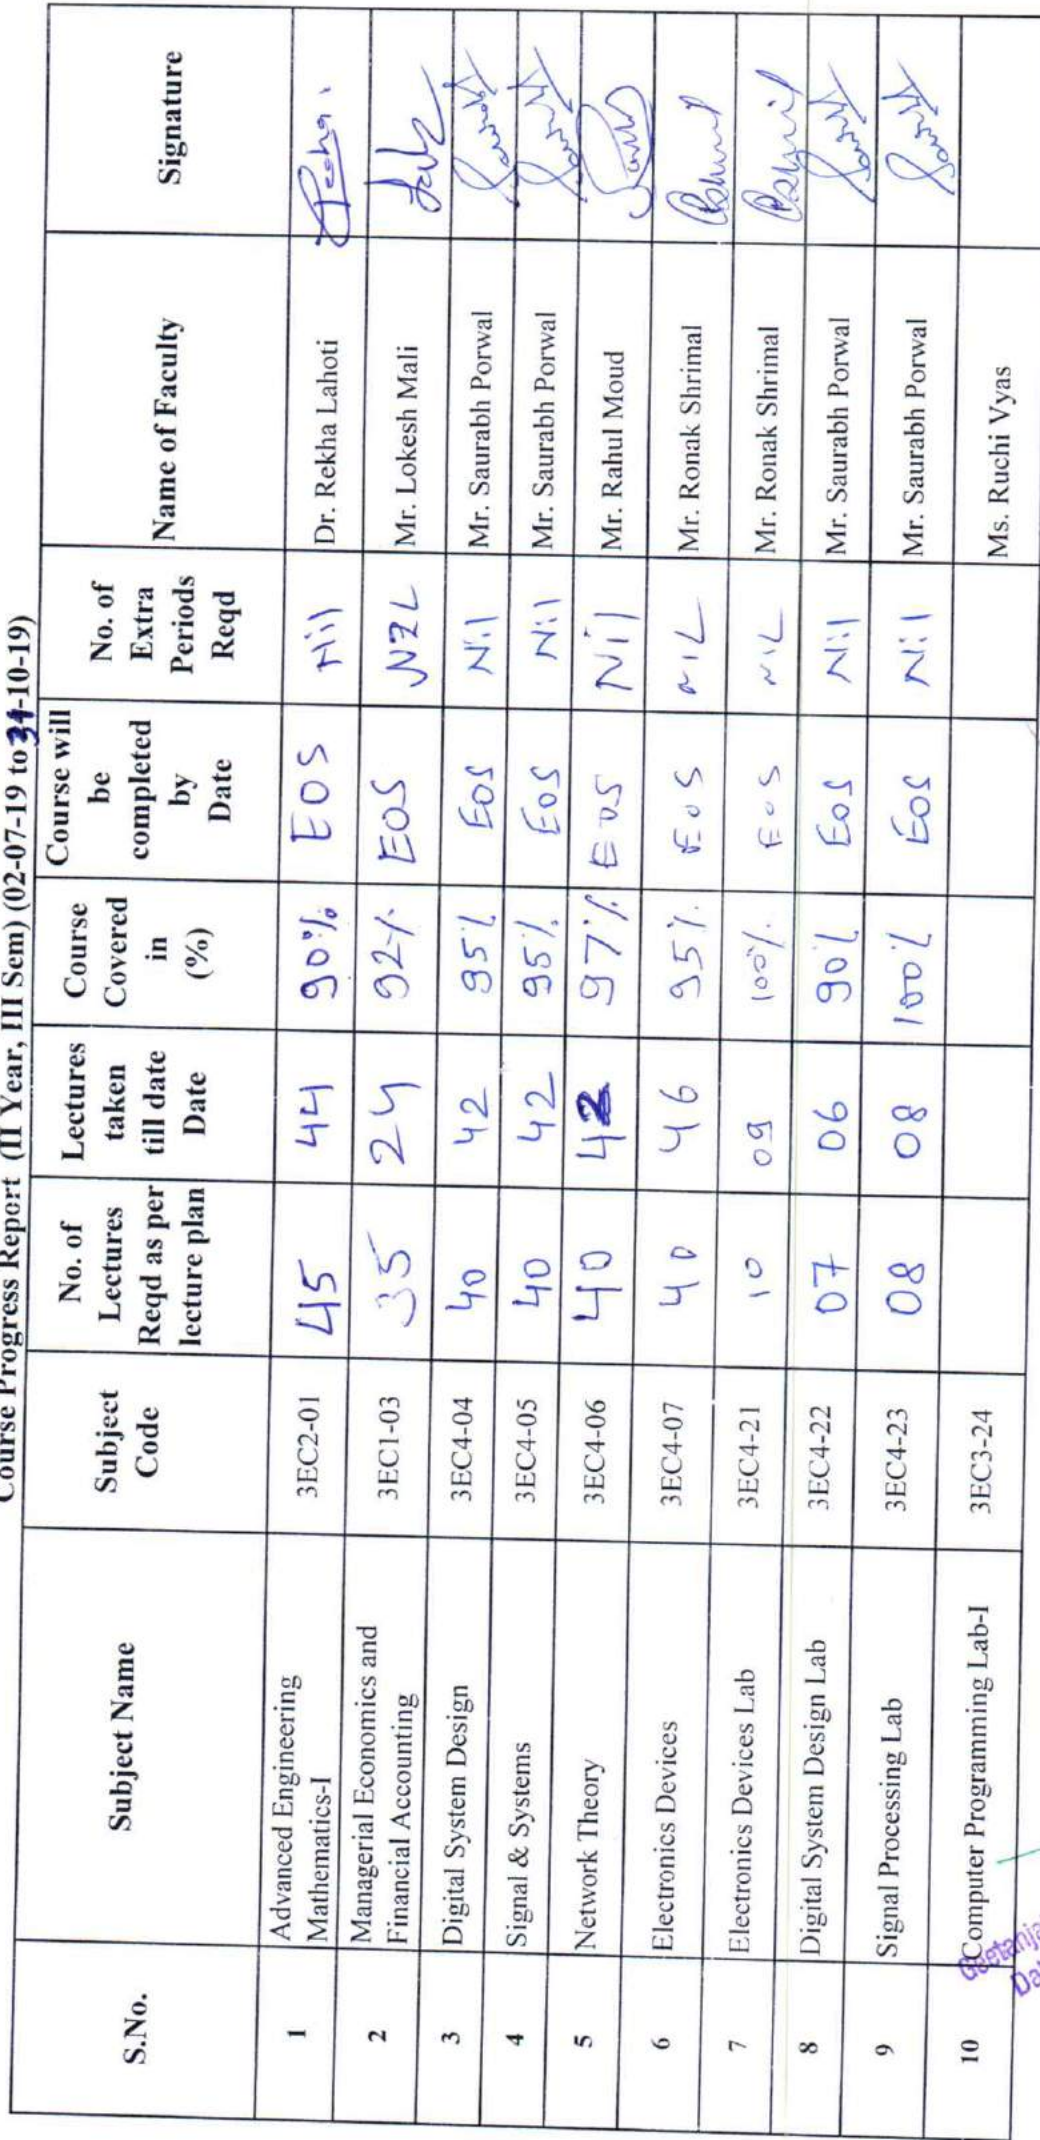 Course Progress Report (II Year, III Sem) (02-07-19 to 31-10-19)
S.No. Subject Name Subject Code No. of Lectures Reqd as per lecture plan Lectures taken till date Date Course Covered in (%) Course will be completed by Date No. of Extra Periods Reqd Name of Faculty Signature
1 Advanced Engineering Mathematics-I 3EC2-01 45 44 90% EOS Nil Dr. Rekha Lahoti
2 Managerial Economics and Financial Accounting 3EC1-03 35 24 92% EOS NIL Mr. Lokesh Mali
3 Digital System Design 3EC4-04 40 42 95% EOS Nil Mr. Saurabh Porwal
4 Signal & Systems 3EC4-05 40 42 95% EOS Nil Mr. Saurabh Porwal
5 Network Theory 3EC4-06 40 42 97% EOS Nil Mr. Rahul Moud
6 Electronics Devices 3EC4-07 40 46 95% EOS NIL Mr. Ronak Shrimal
7 Electronics Devices Lab 3EC4-21 10 09 100% EOS NIL Mr. Ronak Shrimal
8 Digital System Design Lab 3EC4-22 07 06 90% EOS Nil Mr. Saurabh Porwal
9 Signal Processing Lab 3EC4-23 08 08 100% EOS Nil Mr. Saurabh Porwal
10 Computer Programming Lab-I 3EC3-24 Ms. Ruchi Vyas